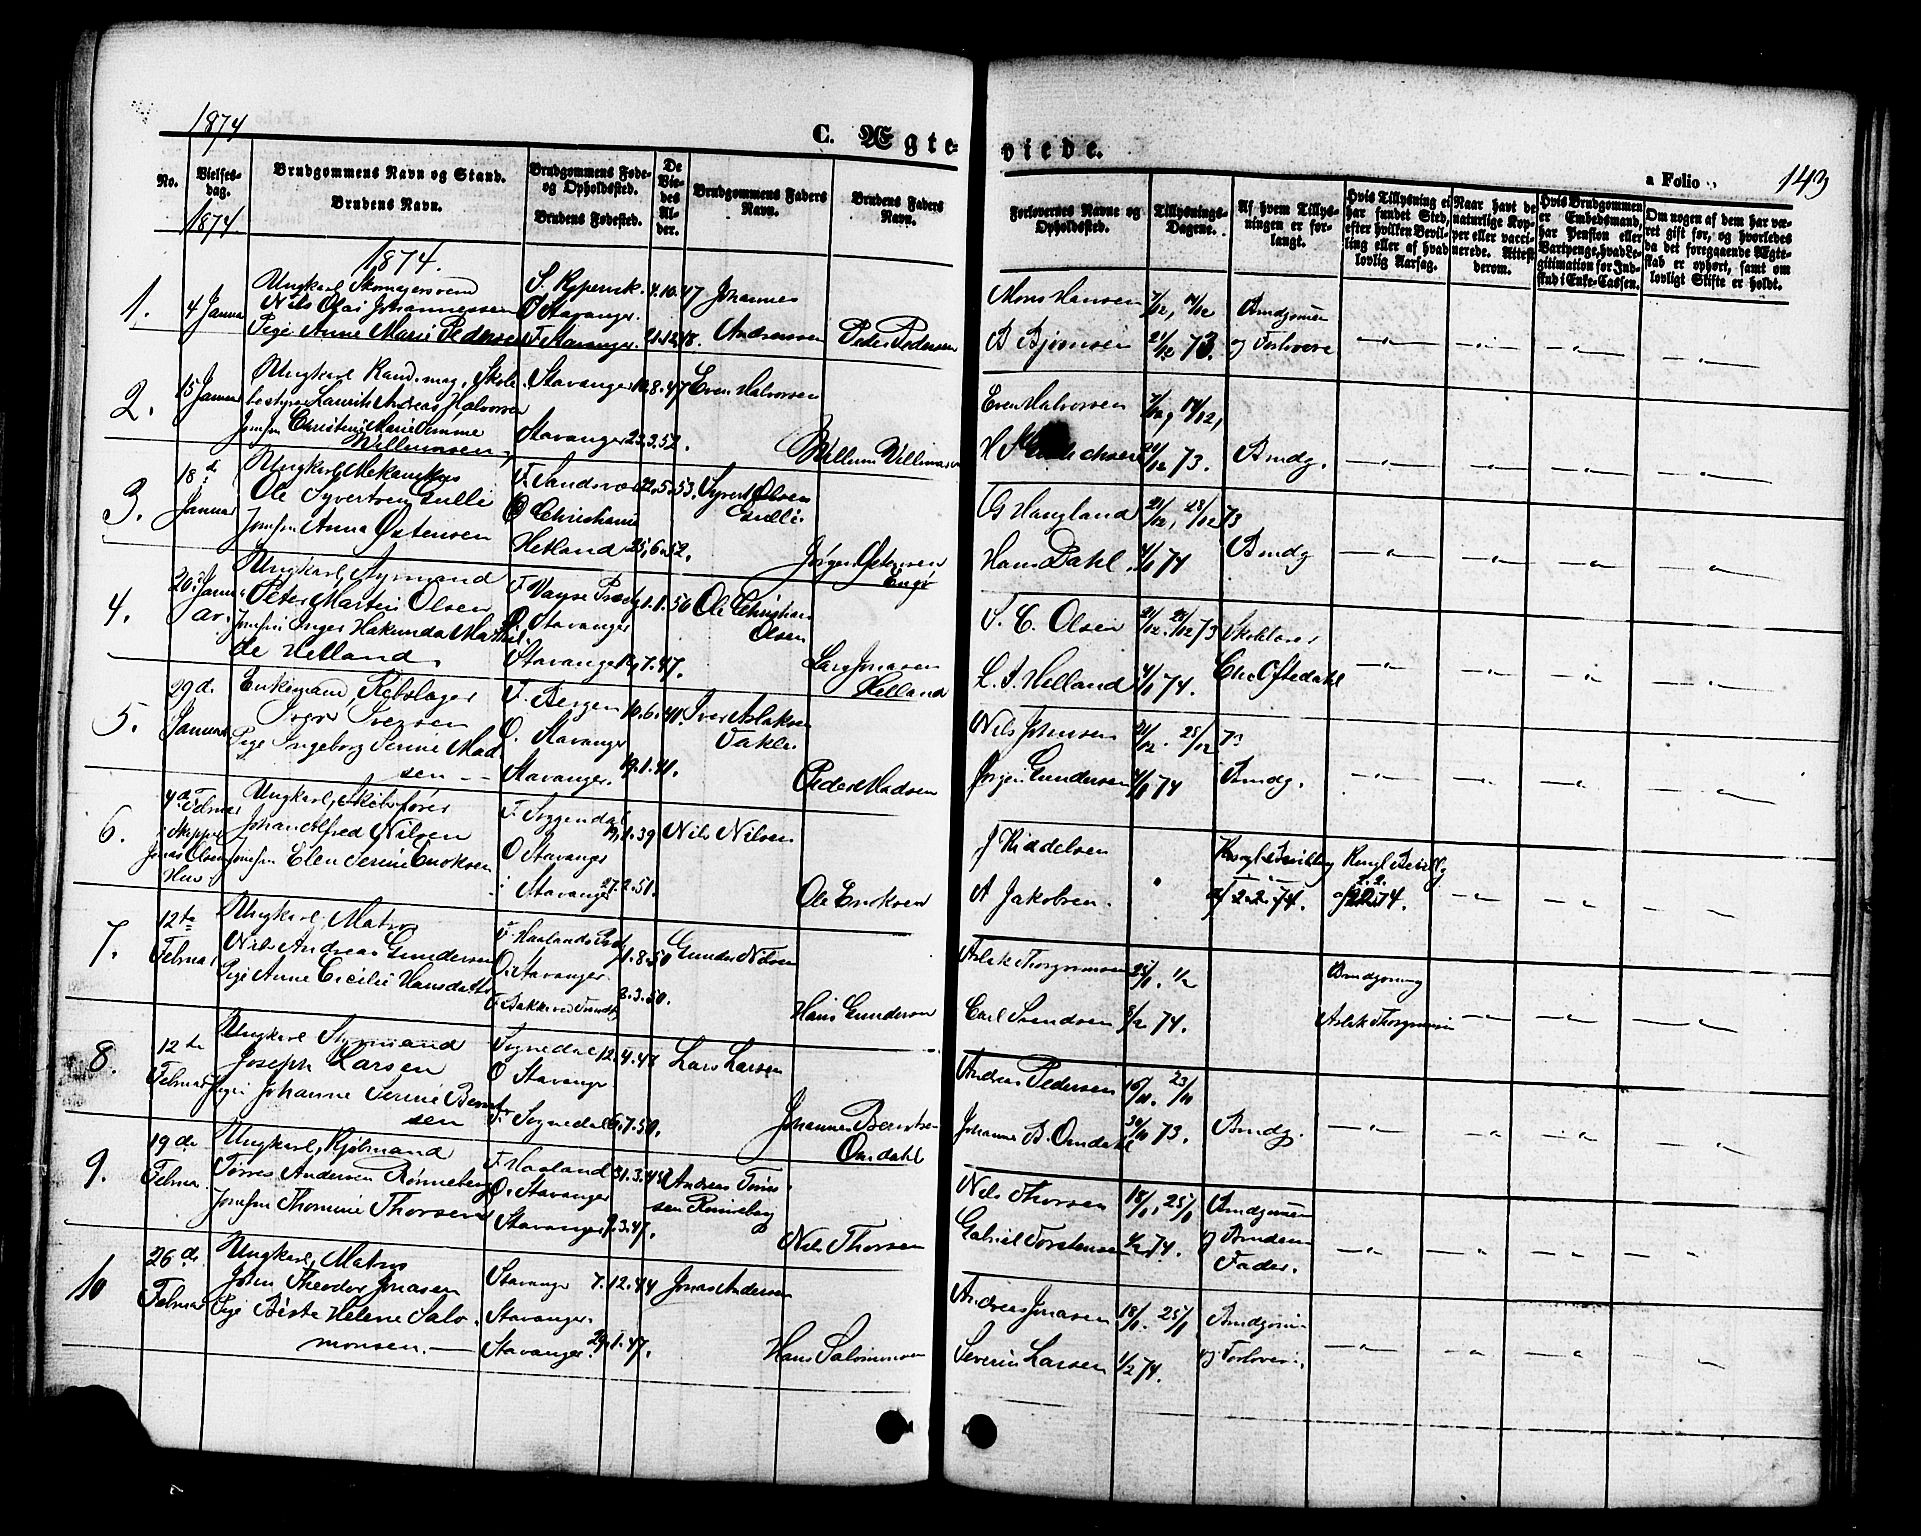 1874
C. Ægte-
viede.
a Folio 143
No.
Vielses-
dag.
1874
Brudgommens Navn og Stand.
Brudens Navn.
Brudgommens Føde-
og Opholdssted.
Brudens Fødested.
De
Vie-
des
Al-
der.
Brudgommens Faders
Navn.
Brudens Faders
Navn.
Forlovernes Navne og
Opholdssted.
Tillysnings-
Dagene.
Af hvem Tillys-
ningen er for-
langt.
Hvis Tillysning ei
har fundet Sted,
efter hvilken Bevil-
ling eller af hvad
lovlig Aarsag.
Naar havt de
naturlige Kop-
per eller vacci-
nerede. Attest
derom.
Hvis Brudgommen
er Embedsmand,
har Pension eller
Vartpenge, hvad Le-
gitimation for Ind-
skud i Enke-Cassen.
Om nogen af dem har væ-
ret gift før, og hvorledes
da det foregaaende Ægte-
skab er ophørt, samt om
lovligt Skifte er holdt.
1874.
1.
4 Januar
Ungkarl Skomagersvend
Nils Olai Johannessen
Pige Anne Marie Pedersen
O Stavanger.
F. Stavanger.
4.10.47
21.12.48.
Johannes
Andreassen
Peder Pedersen
Mons Hansen
B Bjørnsen
7/12, 14/12
21/12 73.
Brudgommen
og Forlovere
2.
15 Januar
Ungkarl Kand. mag. Skole
bestyrer Laurits Andreas Halvorsen
Jomfru Christine Marie Simme
Willumsen
Stavanger
Stavanger
10.8.47
23.3.52.
Even Halvorsen
Willum Willumsen
Even Halvorsen
7/12, 14/12,
21/12 73.
Brudg.
3.
18 d
Januar
Ungkarl, Mekanikus
Ole Syvertsen Gulli
Jomfru Anna Østensen
F. Sandsvær
O Christiania
Hetland
22.5.53.
25.6.52.
Syvert Olsen
Gulli.
Jørgen Østensen
Engø
G Haugland
Hans Dahl.
21/12, 28/12 73
4/1 74
Brudg
4.
20 d Janu
ar.
Ungkarl, Styrmand
Peter Martin Olsen
Jomfru Inger Hakunda Mathil
de Helland
F. Vanse Præstg
O. Stavanger
Stavanger
1.1.50
19.7.47.
Ole Christian
Olsen
Lars Jonasen
Helland
S. C. Olsen
L. S. Helland
21/12. 28/12 73
4/1 74.
Skolelærer
Chr Oftedahl
5.
29 d.
Januar
Enkemand, Rebslager
Iver Iversen
Pige Ingeborg Serine Mad
sen
F. Bergen
O. Stavanger
Stavanger.
10.6.41.
19.1.41.
Iver Aslaksen
Vakle.
Peder Madsen
Nils Johnsen
Ørgen Gundersen
21/12. 28/12 73
4/1 74
Brudg.
6.
4 d. Februar
i Skipper
Jonas Olsens
Hus
Ungkarl, Skibsfører
Johan Alfred Nilsen
Jomfru Elen Serine Enoksen
F. Soggendal
O Stavanger
i Stavanger
19.1.39
27.2.51.
Nils Nilsen
Ole Enoksen
J Kiddelsen
A Jakobsen.
Kongl. Bevilling
af 2.2.74.
Kongl. Bevillg
af 2.2.74.
7.
12te
Februar
Ungkarl, Matros
Nils Andreas Gundersen
Pige Anne Cicilie Hansdatter
F. Haalands Prst
O. Stavanger.
1.8.50
8.3.50.
Gunder Nilsen
Hans Gundersen
Aslak Thorgrimsen
Carl Svendsen
25/1. 1/2
8/2 74.
Brudgommen
Aslak Thorgrimsen
8.
12 te
Februar
Ungkarl Styrmand
Joseph Larsen
Pige Johanne Serine Bernt
sen
Sognedal
O Stavanger
F. Sognedal
12.4.48
6.7.50.
Lars Larsen
Johannes Berntsen
Omdahl
Andreas Pedersen
Johannes B. Omdahl
16/11. 23/11
30/11 73.
Brudg.
9.
19 de
Februar.
Ungkarl, Kjøbmand
Tørres Andersen Rønneberg
Jomfru Thomine Thorsen
F. Haaland
O. Stavanger
Stavanger
31.3.48
9.3.47.
Andreas Tørres
sen Rønneberg
Nils Thorsen
Nils Thorsen
Gabriel Torstensen
18/1, 25/1
1/2 74.
Brudgommen
og Brudens
Fader.
10
26 de
Februar
Ungkarl, Matros
John Theodor Jonasen
Pige Berte Helene Salo
monsen.
Stavanger
Stavanger.
Stavanger.
7.12.44
29.1.47.
Jonas Andersen
Hans Salomonsen
Andreas Jonasen
Severin Larsen
18/1. 25/1
1/2 74.
Brudgommen
og Forlover